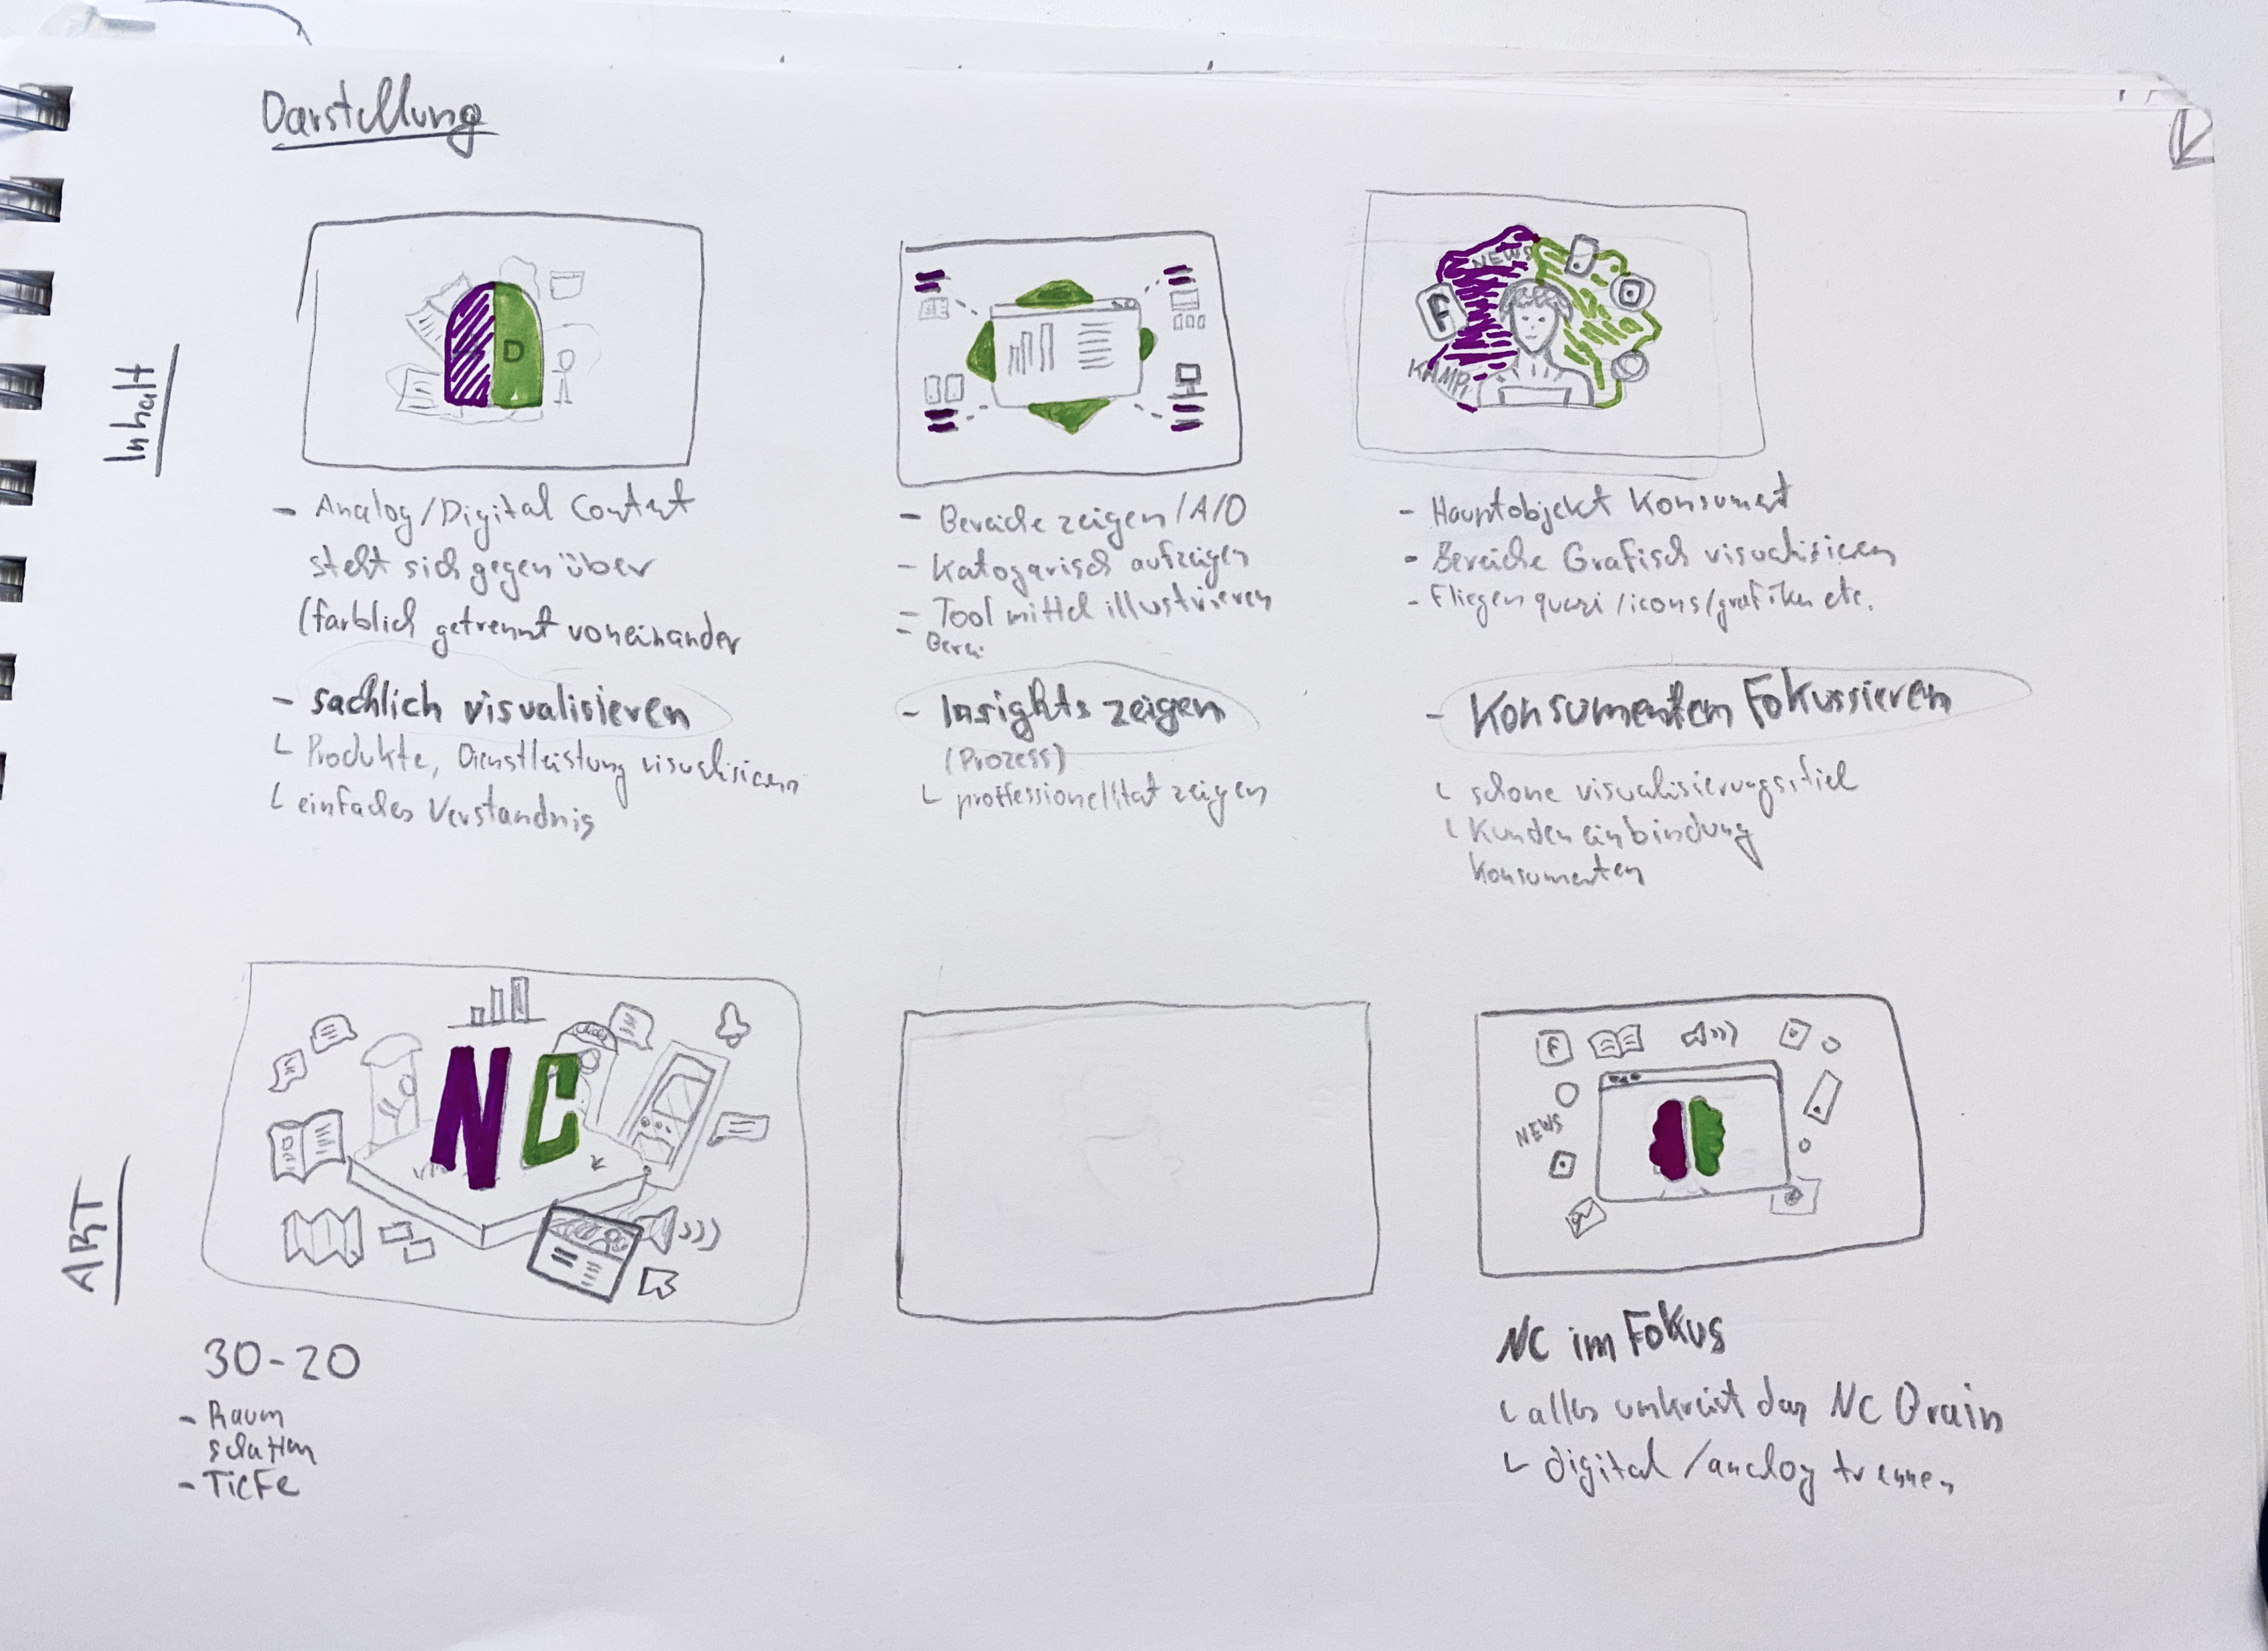 Darstellung
Inhalt
D
NEWS
F
KAMP
- Analog/Digital Content
steht sich gegenüber
(farblich getrennt voneinander
- sachlich visualisieren
└ Produkte, Dienstleistung visualisieren
└ einfaches Verständnis
- Bereiche zeigen/A/D
- Katogarisch aufzeigen
- Tool mittel illustrieren
- Berei
- Insights zeigen
(Prozess)
└ proffessionellität zeigen
- Hauptobjekt Konsument
- Bereiche Grafisch visualisieren
- Fliegen quasi/icons/grafiken etc.
- Konsumenten Fokussieren
└ schöne visualisierungsstiel
└ Kundeneinbindung
Konsumenten
ART
NC
30-20
- Raum
schatten
- Tiefe
F
NEWS
NC im Fokus
└ alles umkreist das NC Brain
└ digital/analog trennen